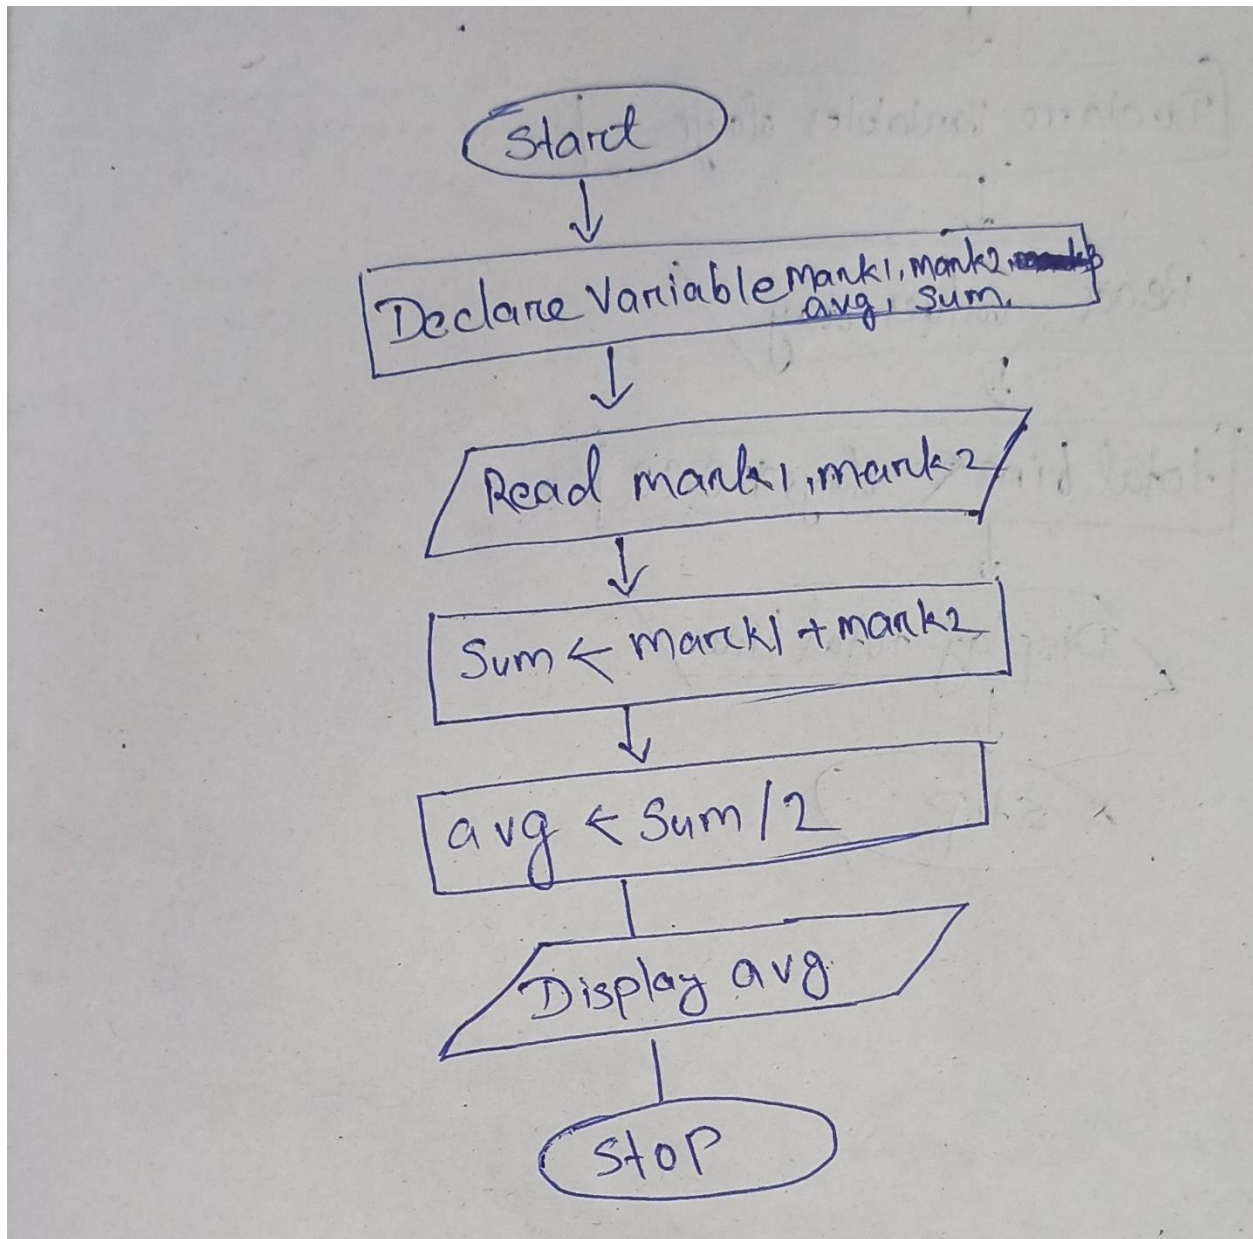 Start
Declare Variable mark1, mark2,
avg, sum.
Read mark1, mark2
Sum ← mark1 + mark2
avg ← Sum / 2
Display avg
Stop